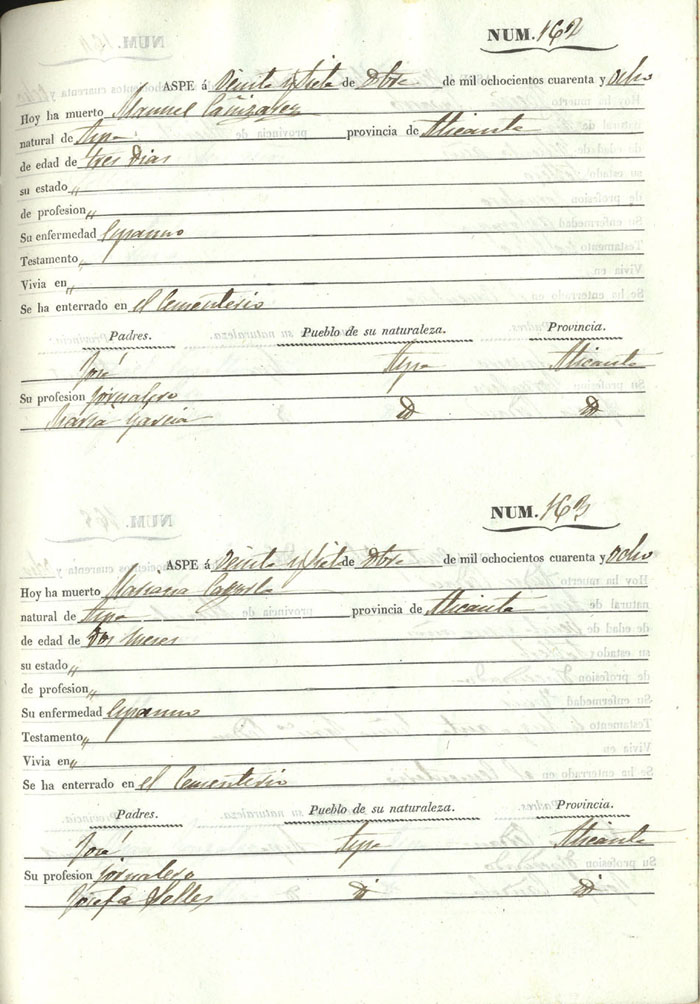 NUM. 162
ASPE á Veinte y siete de Dbre de mil ochocientos cuarenta y ocho
Hoy ha muerto Manuel Cañizarez
natural de Aspe provincia de Alicante
de edad de tres Dias
su estado "
de profesion "
Su enfermedad Espasmo
Testamento "
Vivia en "
Se ha enterrado en el Cementerio
Padres. Pueblo de su naturaleza. Provincia.
José Aspe Alicante
Su profesion jornalero
Maria Garcia D D
NUM. 163
ASPE á Veinte y siete de Dbre de mil ochocientos cuarenta y ocho
Hoy ha muerto Mariana
natural de Aspe provincia de Alicante
de edad de Dos meses
su estado "
de profesion "
Su enfermedad Espasmo
Testamento "
Vivia en "
Se ha enterrado en el Cementerio
Padres. Pueblo de su naturaleza. Provincia.
José Aspe Alicante
Su profesion jornalero
Josefa Selles D D